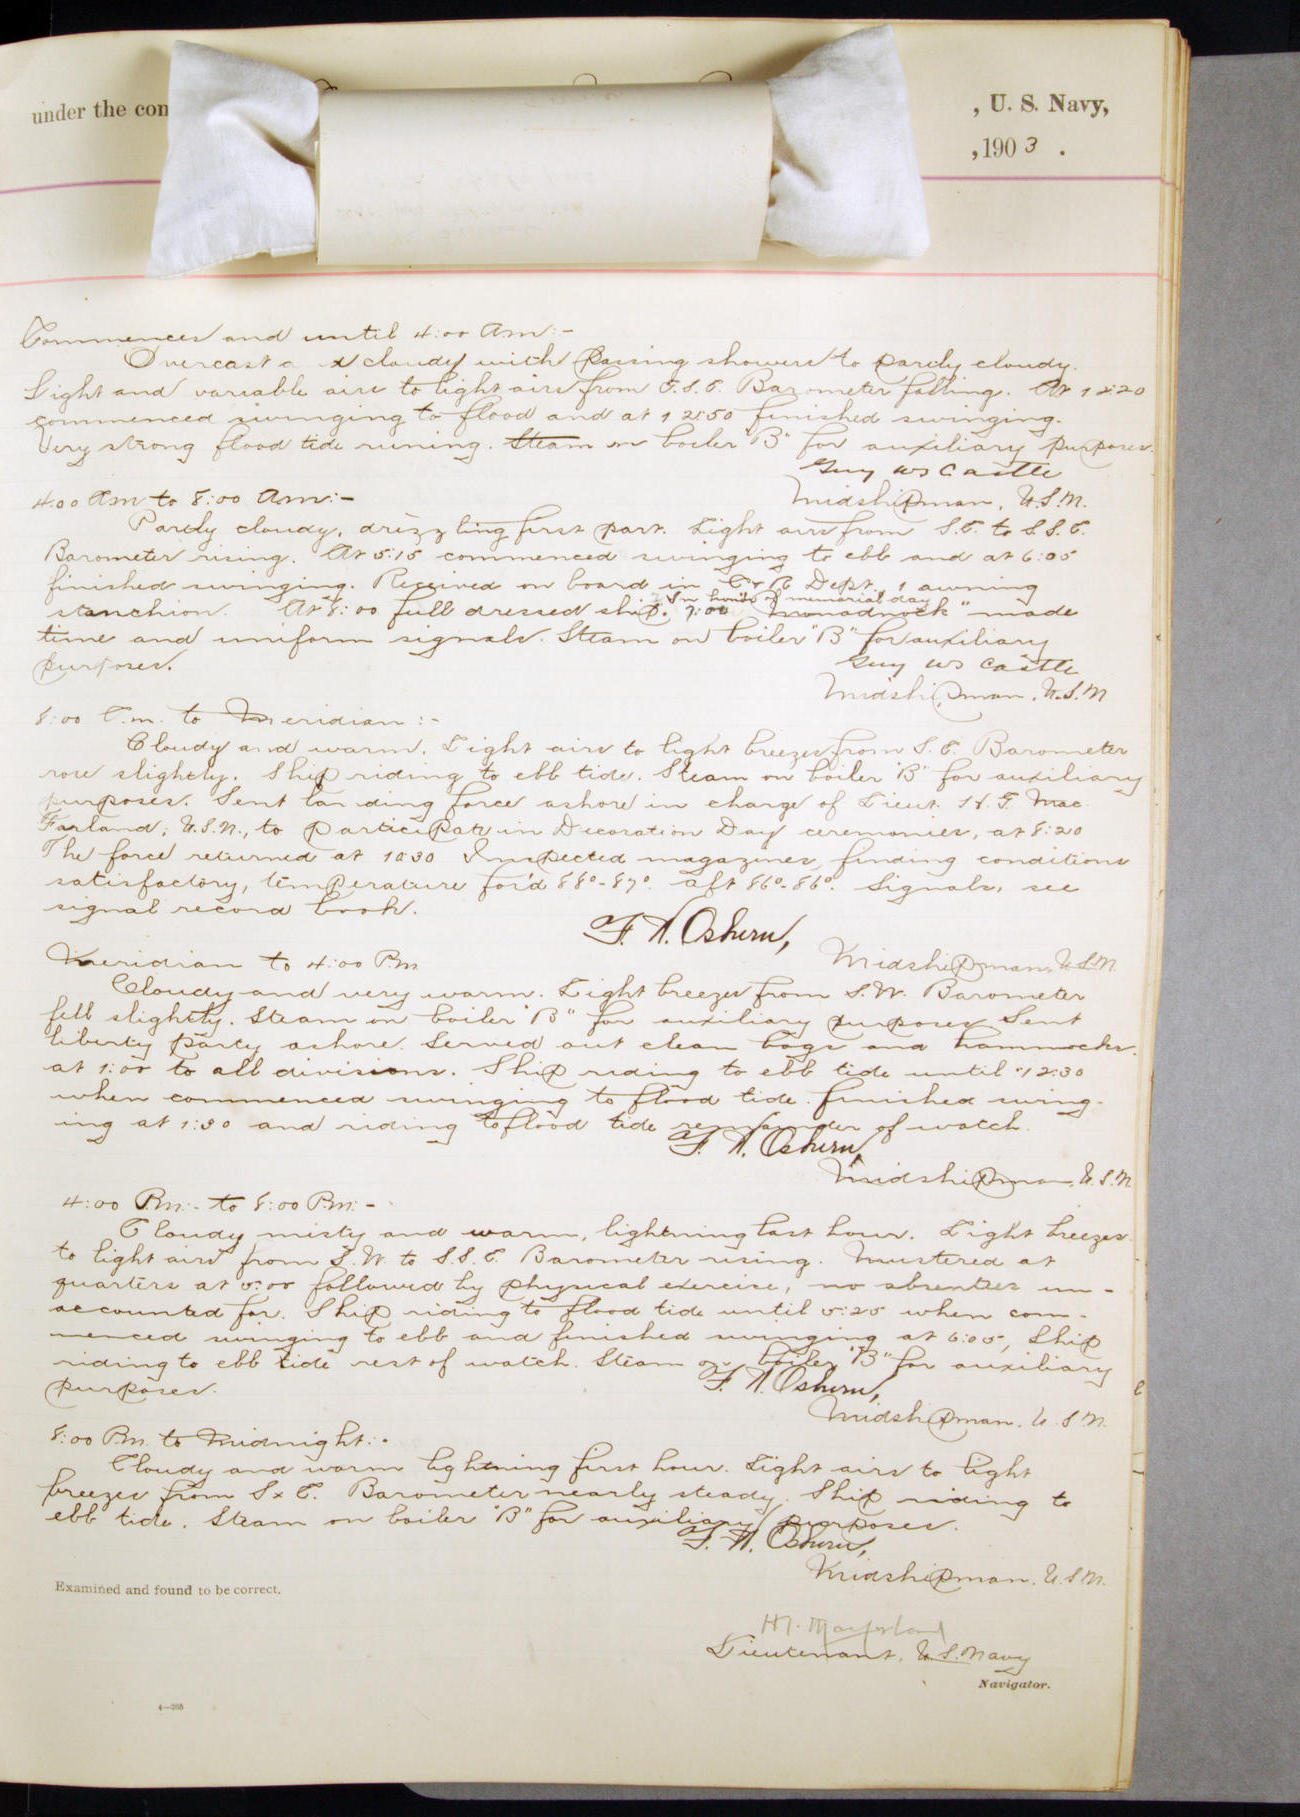 under the com
, U. S. Navy,
, 190 3 .
Commences and until 4:00 Am:-
Overcast cloudy with passing showers to partly cloudy.
Light and variable airs to light airs from E.S.E. Barometer falling. At 12:20
commenced swinging to flood and at 12:50 finished swinging.
Very strong flood tide runing. Steam on boiler "B" for auxiliary purposes.
Guy W S Castle
Midshipman, U.S.N.
4:00 Am to 8:00 Am:-
Partly cloudy, drizzling first part. Light airs from S.E. to S.S.E.
Barometer rising. At 5:15 commenced swinging to ebb and at 6:05
finished swinging. Received on board in C & R Dept. 1 awning
In honor of memorial day
stanchion. At 8:00 full dressed ship. 7:00 "Monadnock" made
time and uniform signals. Steam on boiler "B" for auxiliary
purposes.
Guy W S Castle
Midshipman, U.S.N
8:00 A.m. to Meridian:-
Cloudy and warm. Light airs to light breezes from S.E. Barometer
rose slightly. Ship riding to ebb tide. Steam on boiler "B" for auxiliary
purposes. Sent landing force ashore in charge of Lieut. H. G. Mac
Farland, U.S.N., to participate in Decoration Day ceremonies, at 8:20
The force returned at 10:30 Inspected magazines, finding conditions
satisfactory, temperature for'd 88°-87°. aft 86°-86°. Signals, see
signal record book.
F. A. Osburn,
Midshipman, U.S.N.
Meridian to 4:00 P.m
Cloudy and very warm. Light breezes from S.W. Barometer
fell slightly. Steam on boiler "B" for auxiliary purposes Sent
liberty party ashore. Served out clean bags and hammocks
at 1:00 to all divisions. Ship riding to ebb tide until 12:30
when commenced swinging to flood tide. finished swing-
ing at 1:30 and riding to flood tide remainder of watch.
F. A. Osburn,
Midshipman, U.S.N
4:00 P.m.- to 8:00 P.m:-
Cloudy misty and warm, lightning last hour. Light breezes
to light airs from S.W. to S.S.E. Barometer rising. Mustered at
quarters at 5:00 followed by physical exercise, no absentees un-
accounted for. Ship riding to flood tide until 5:25 when com-
menced swinging to ebb and finished swinging at 6:05, Ship
riding to ebb tide rest of watch. Steam on boiler "B" for auxiliary
purposes.
F. A. Osburn,
Midshipman. U.S.N.
8:00 P.m. to Midnight:-
Cloudy and warm lightning first hour. Light airs to light
breezes from S x E. Barometer nearly steady. Ship riding to
ebb tide. Steam on boiler "B" for auxiliary purposes.
F. A. Osburn,
Midshipman. U.S.N.
Examined and found to be correct.
Lieutenant, U.S. Navy
Navigator.